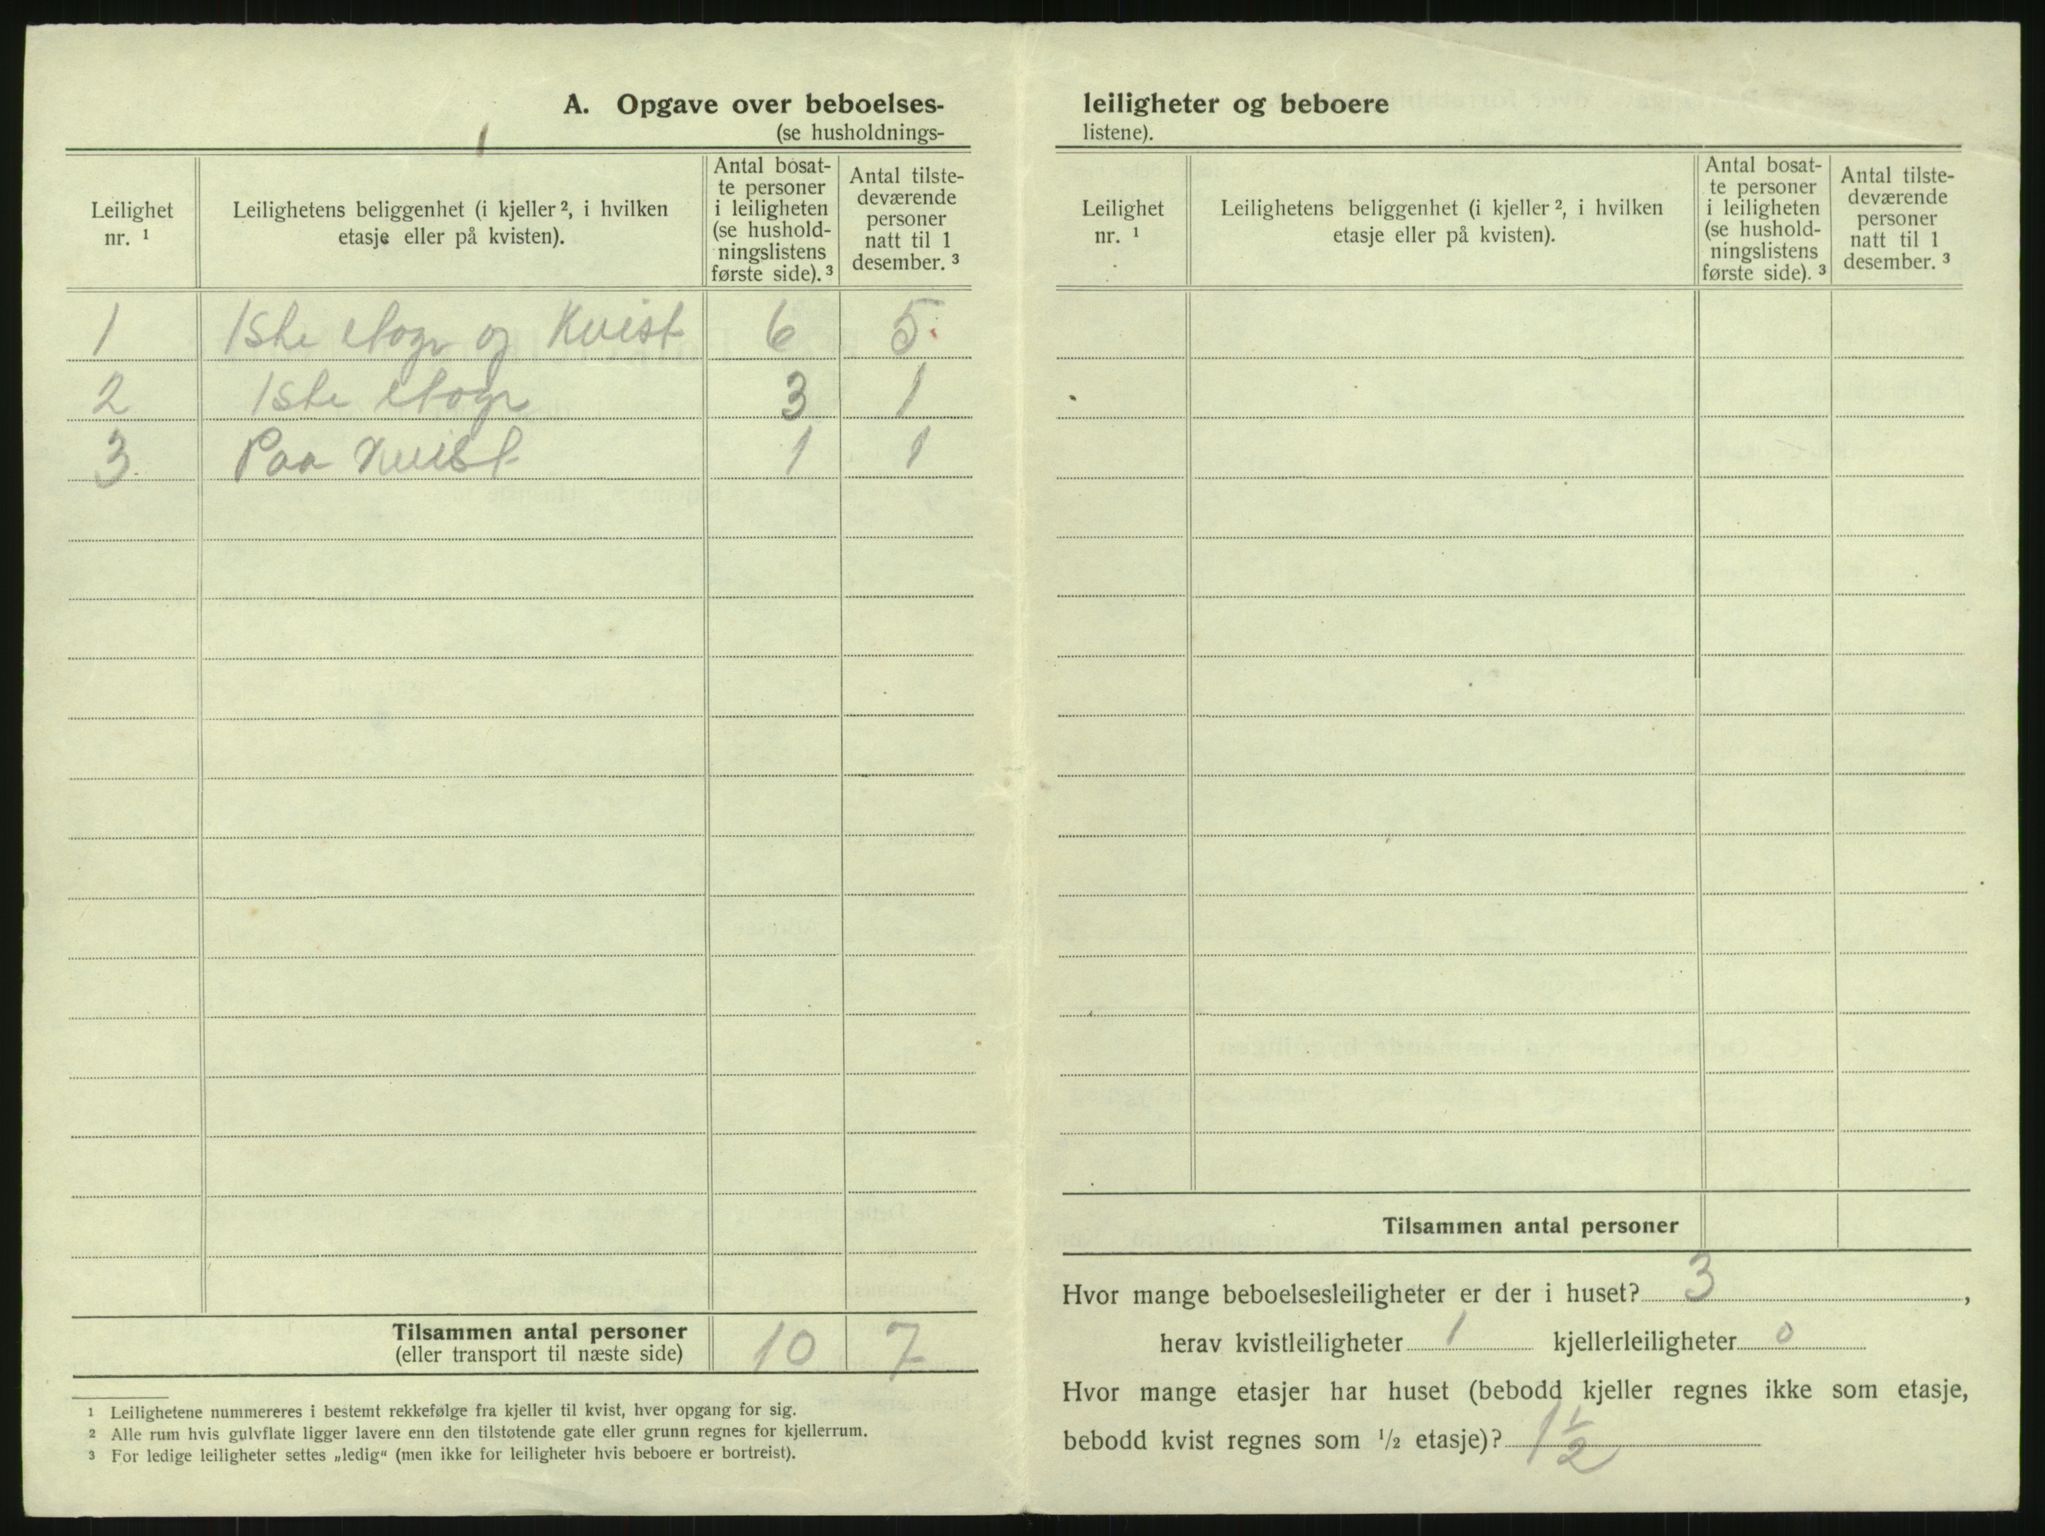 A. Opgave over beboelses-
(se husholdnings-
Leilighet nr. ¹
Leilighetens beliggenhet (i kjeller ², i hvilken etasje eller på kvisten).
Antal bosat-
te personer
i leiligheten
(se hushold-
ningslistens
første side). ³
Antal tilste-
deværende
personer
natt til 1
desember. ³
1 1ste etage og Kvist 6 5
2 1ste etage 3 1
3 Paa Kvist 1 1
Tilsammen antal personer 10 7
(eller transport til næste side)
¹ Leilighetene nummereres i bestemt rekkefølge fra kjeller til kvist, hver opgang for sig.
² Alle rum hvis gulvflate ligger lavere enn den tilstøtende gate eller grunn regnes for kjellerrum.
³ For ledige leiligheter settes „ledig“ (men ikke for leiligheter hvis beboere er bortreist).
leiligheter og beboere
listene).
Leilighet nr. ¹
Leilighetens beliggenhet (i kjeller ², i hvilken etasje eller på kvisten).
Antal bosat-
te personer
i leiligheten
(se hushold-
ningslistens
første side). ³
Antal tilste-
deværende
personer
natt til 1
desember. ³
Tilsammen antal personer
Hvor mange beboelsesleiligheter er der i huset? 3 ,
herav kvistleiligheter 1 kjellerleiligheter 0
Hvor mange etasjer har huset (bebodd kjeller regnes ikke som etasje,
bebodd kvist regnes som ½ etasje)? 1½